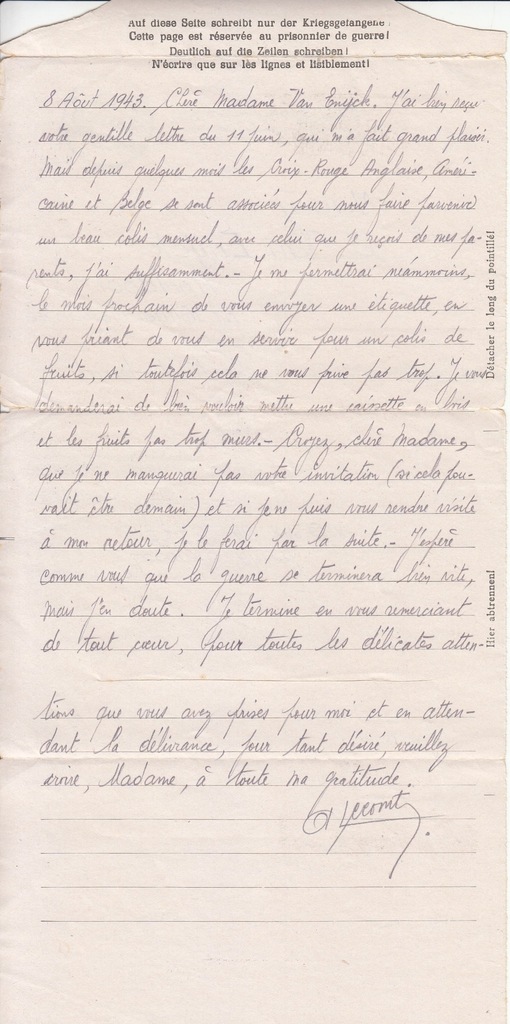 Auf diese Seite schreibt nur der Kriegsgefangene!
Cette page est réservée au prisonnier de guerre!
Deutlich auf die Zeilen schreiben!
N'écrire que sur les lignes et lisiblement!
8 Août 1943. Chère Madame Van Enijck. J'ai bien reçu
votre gentille lettre du 11 juin, qui m'a fait grand plaisir.
Mais depuis quelques mois les Croix-Rouge Anglaise, Améri-
caine et Belge se sont associés pour nous faire parvenir
un beau colis mensuel, avec celui que je reçois de mes pa-
rents, j'ai suffisamment.- Je me permettrai néanmoins,
le mois prochain de vous envoyer une étiquette, en
vous priant de vous en servir pour un colis de
fruits, si toutefois cela ne vous prive pas trop. Je vous
demanderai de bien vouloir mettre une caissette en bois
et les fruits pas trop murs.- Croyez, chère Madame,
que je ne manquerai pas votre invitation (si cela pou-
vait être demain) et si je ne puis vous rendre visite
à mon retour, je le ferai par la suite.- J'espère
comme vous que la guerre se terminera bien vite,
mais j'en doute. Je termine en vous remerciant
de tout cœur, pour toutes les délicates atten-
tions que vous avez prises pour moi et en atten-
dant la délivrance, jour tant désiré, veuillez
croire, Madame, à toute ma gratitude.
Lecomt
Détacher le long du pointillé!
Hier abtrennen!